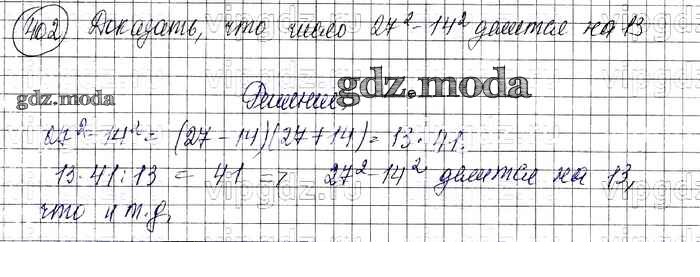 402 Доказать, что число 27² - 14² делится на 13
gdz.moda
Решение
gdz.moda
27² - 14² = (27 - 14)(27 + 14) = 13 · 41.
13 · 41 : 13 = 41 => 27² - 14² делится на 13,
что и т.д.